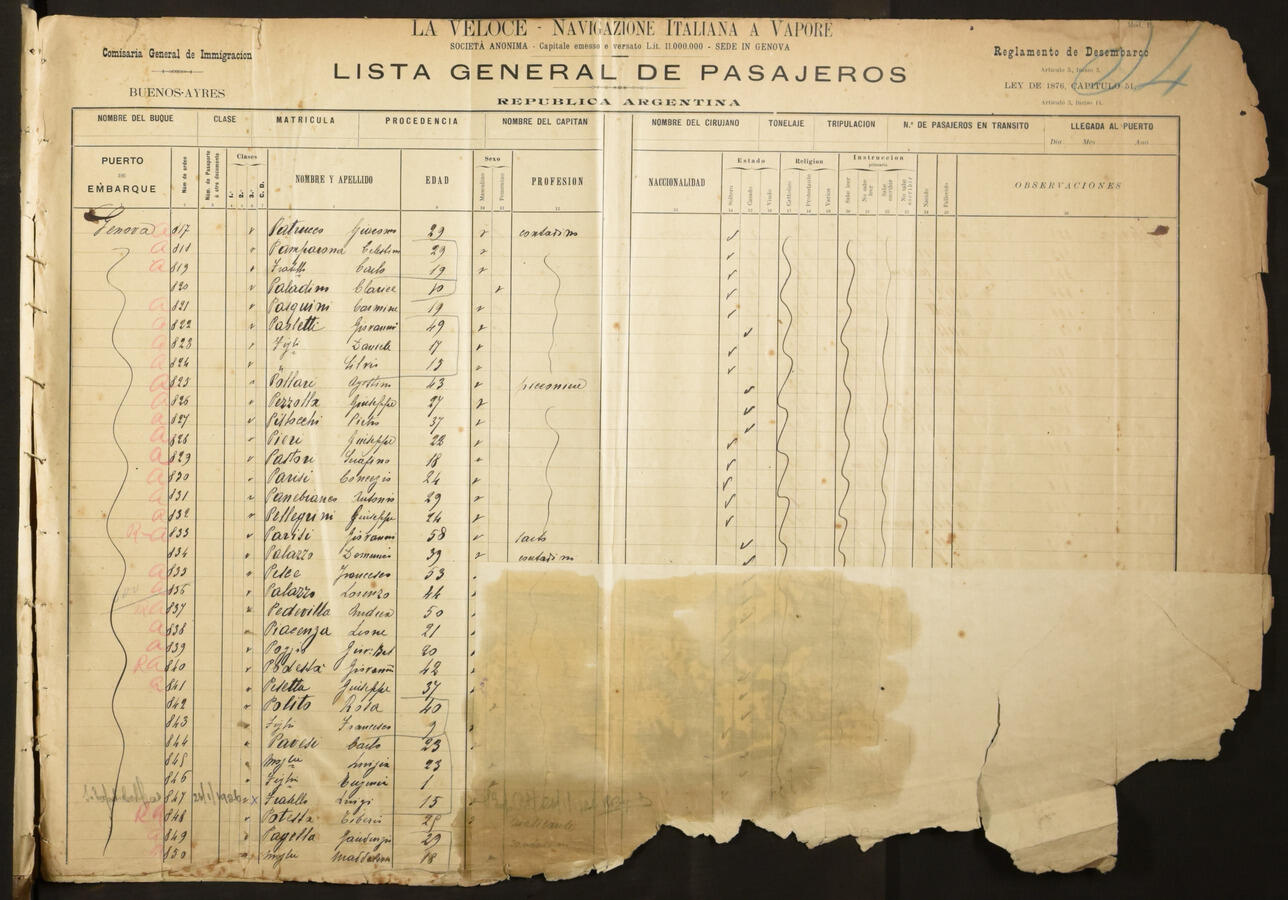 LA VELOCE - NAVIGAZIONE ITALIANA A VAPORE
SOCIETÀ ANONIMA - Capitale emesso e versato Lit. 11.000.000 - SEDE IN GENOVA
Comisaria General de Immigracion
BUENOS-AYRES
LISTA GENERAL DE PASAJEROS
REPUBLICA ARGENTINA
Reglamento de Desembarco
Articulo 5, Inciso 3.
LEY DE 1876, CAPITULO 51.
Articulo 3, Inciso 11.
NOMBRE DEL BUQUE CLASE MATRICULA PROCEDENCIA NOMBRE DEL CAPITAN NOMBRE DEL CIRUJANO TONELAJE TRIPULACION N.º DE PASAJEROS EN TRANSITO LLEGADA AL PUERTO
Dia Mes Ano
PUERTO DE EMBARQUE Núm de orden Núm. de Pasaporte ó otro documento Clases 1.ª 2.ª 3.ª C. D. NOMBRE Y APELLIDO EDAD Sexo Masculino Femenino PROFESION NACCIONALIDAD Estado Soltero Casado Viudo Religion Cattolico Protestante Varios Instruccion primaria Sabe leer No sabe leer Sabe escribir No sabe escribir Nacido Fallecido OBSERVACIONES
Genova a 817 Patrucco Giacomo 29 contadino
a 818 Pamparana Celestino 29
a 819 Fratello Carlo 19
820 Paladini Clarice 10
a 821 Pasquini Carmine 19
a 822 Paoletti Giovanni 49
a 823 Figli Daniele 17
a 824 " Silvio 15
a 825 Pollari Agostino 43
a 826 Pezzolla Giuseppe 27
a 827 Pistocchi Pietro 37
a 828 Pieri Giuseppe 22
a 829 Pastori Serafino 18
a 830 Parisi Concezio 24
a 831 Panebianco Antonio 29
a 832 Pellegrini Giuseppe 24
R-a 833 Parisi Giovanni 58
834 Palazzo Domenico 39 contadino
a 835 Pesce Francesco 53
a 836 Palazzo Lorenzo 44
837 Pedevilla Andrea 50
a 838 Piacenza Leone 21
a 839 20
Ra 840 Podestà Giovanni 42
a 841 Pesetta Giuseppe 37
842 Polito Rosa 40
843 Figlio Francesco 9
844 Pavesi Carlo 23
845 Moglie Luigia 23
846 Figlia Eugenia 1
847 x Fratello Luigi 15
Ra 848 Potestà
a 849 Pagella Gaudenzio 29
850 Moglie Maddalena 18